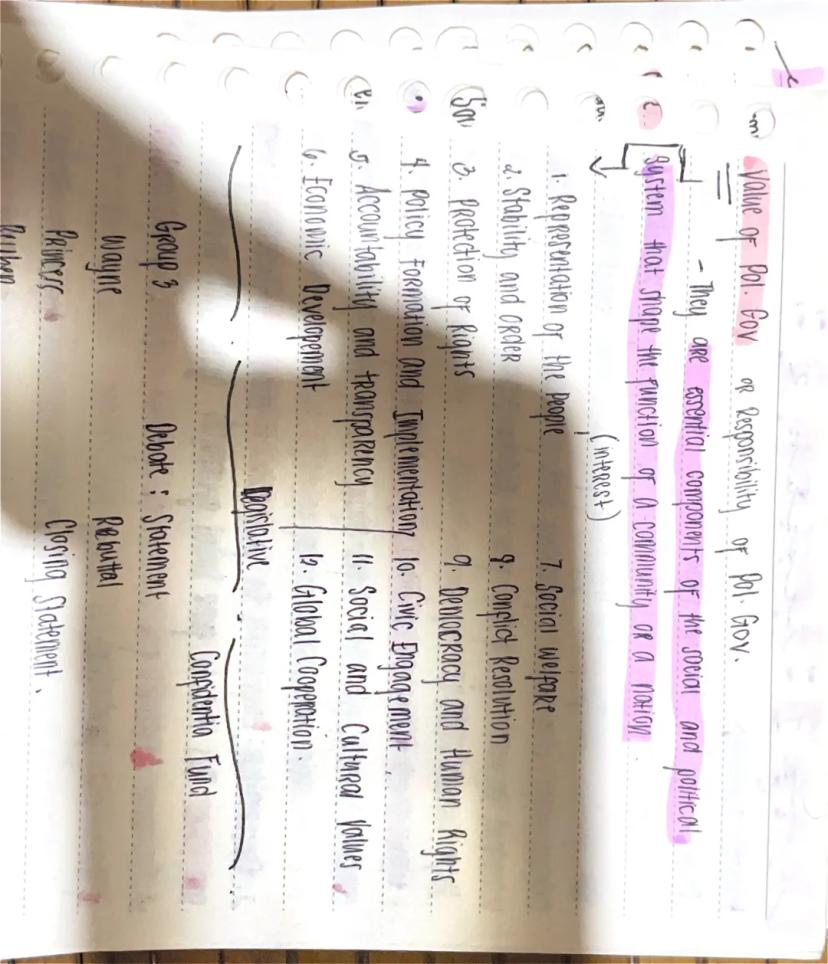 Value of Pol. Gov or Responsibility of Pol. Gov.
- They are essential components of the social and political
system that shape the function of a community or a nation.
(interest)
1. Representation of the People
2. Stability and order
3. Protection of Rights
4. Policy Formation and Implementation
5. Accountability and transparency
6. Economic Developement
7. Social welfare
8. Conflict Resolution
9. Democracy and Human Rights
10. Civic Engagement
11. Social and Cultural Values
12. Global Cooperation.
Legislative
Confidentia Fund
Group 3
Debate : Statement
Wayne
Rebuttal
Princess
Closing Statement.